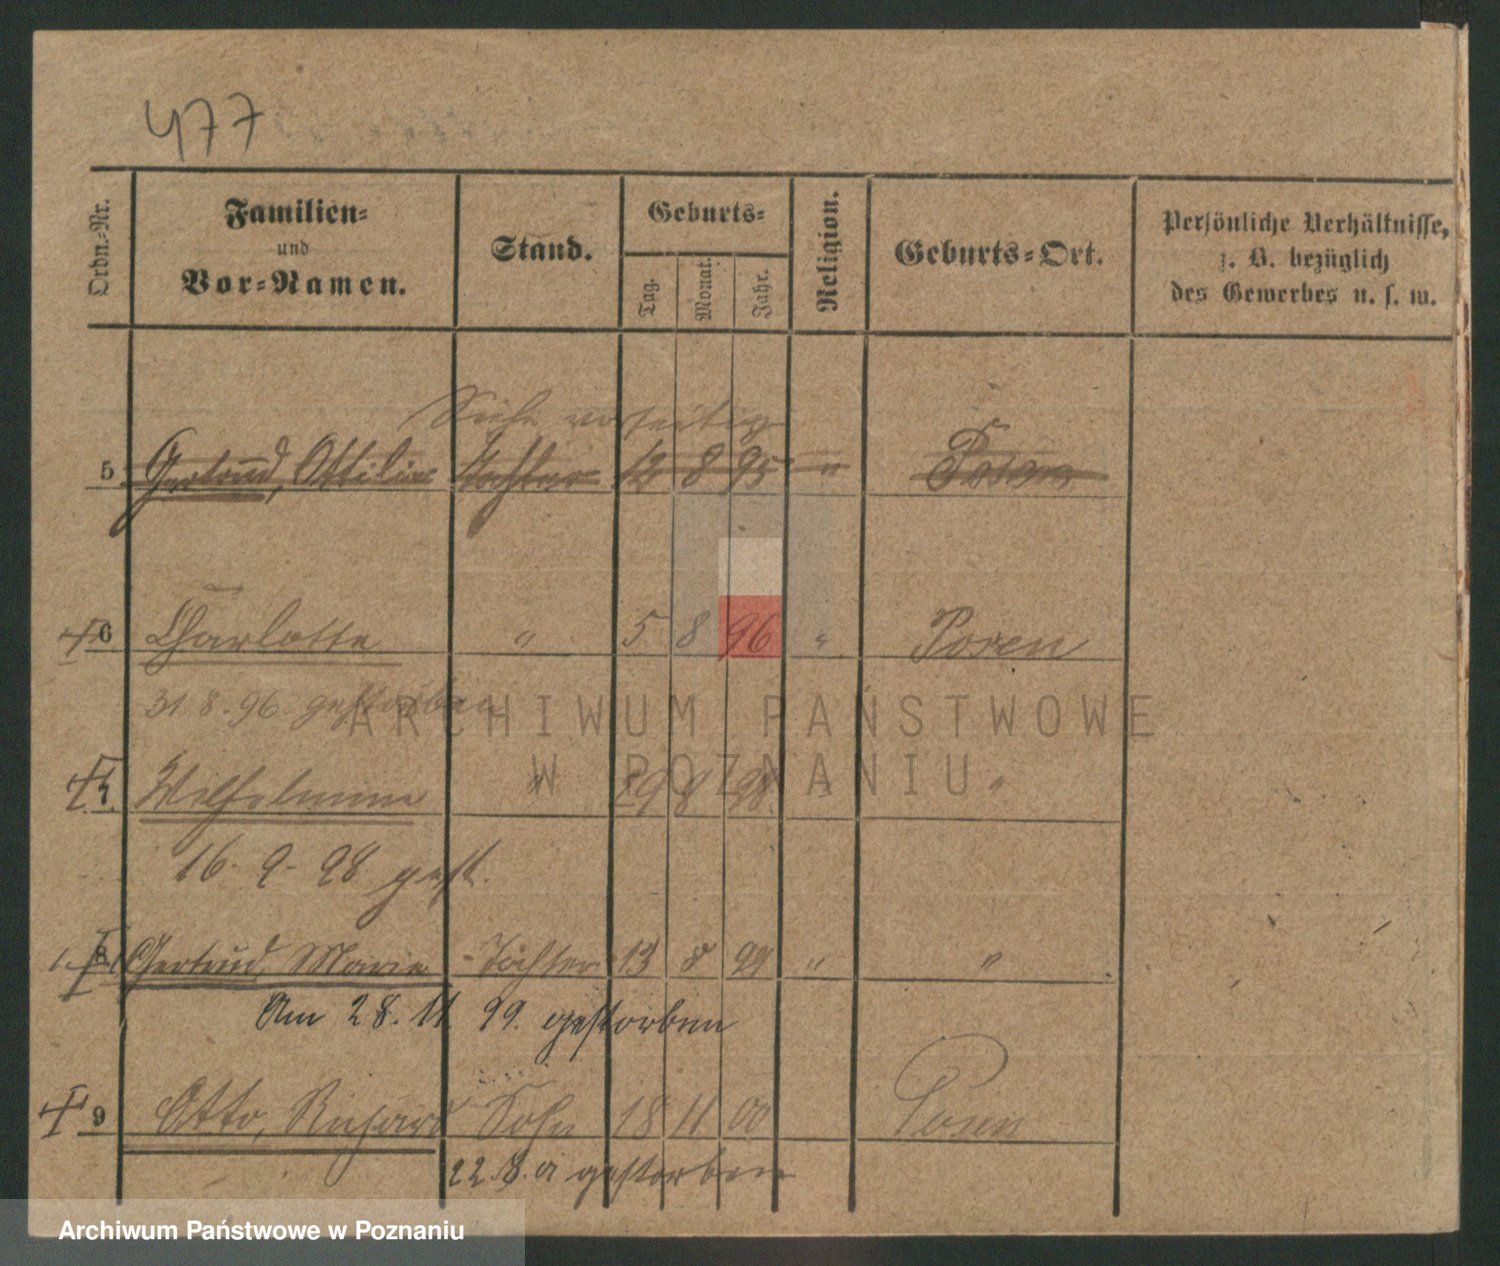 477
Ordn.-Nr.
Familien-
und
Vor-Namen.
Stand.
Geburts-
Tag.
Monat.
Jahr.
Religion.
Geburts-Ort.
Persönliche Verhältnisse,
z. B. bezüglich
des Gewerbes u. s. w.
Siehe vorseitig
5 Gertrud, Ottilie Tochter 12 8 95 " Posen
6 Charlotte " 5 8 96 " Posen
31.8.96. gestorben
7 Wilhelmine " 29 8 98 " "
16.9.98 gest.
8 Gertrud Marie Tochter 13 8 99 " "
Am 28.11.99. gestorben
9 Otto, Richard Sohn 18 11 00 Posen
22.8.01 gestorben
ARCHIWUM PAŃSTWOWE
W POZNANIU
Archiwum Państwowe w Poznaniu